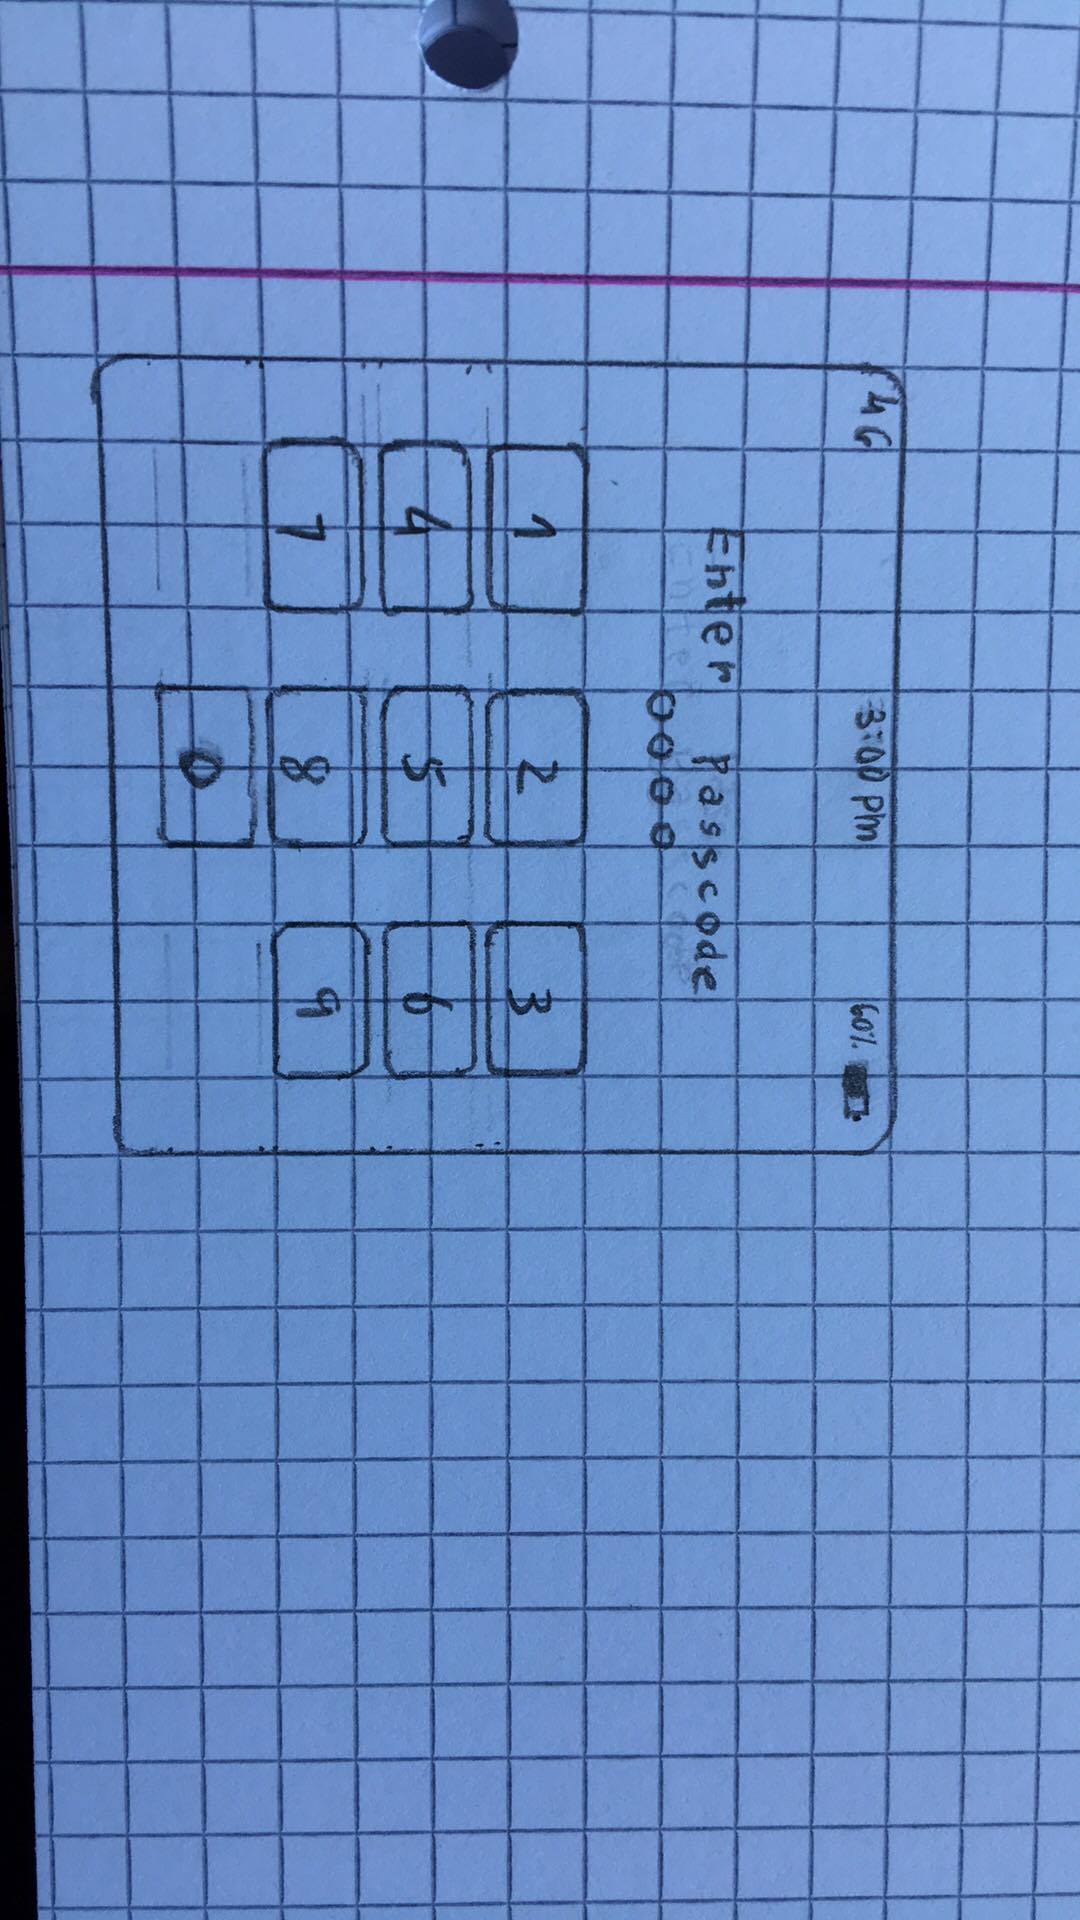 4G 3:00 Pm 60%
Enter Passcode
1 2 3
4 5 6
7 8 9
0